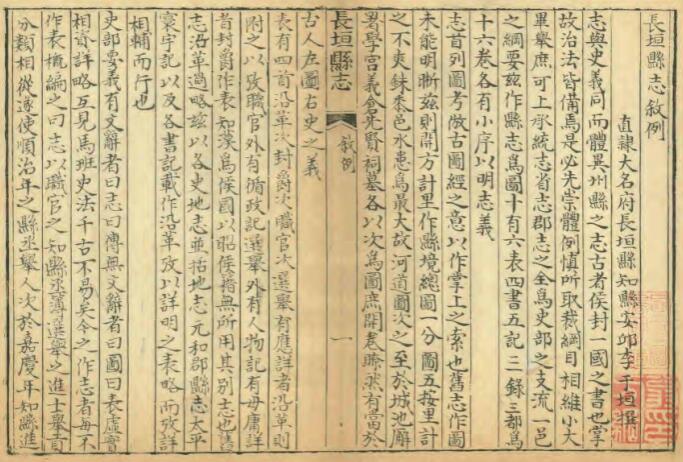 長垣縣志敘例
直隸大名府長垣縣知縣安邱李于垣撰
志與史義同而體異州縣之志古者侯封一國之書也掌
故治法皆備焉是必先崇體例慎所取裁綱目相維小大
畢舉庶可上承統志省志郡志之全爲史部之支流一邑
之綱要玆作縣志爲圖十有六表四書五記三錄三都爲
十六卷各有小序以明志義
志首列圖考倣古圖經之意以作掌上之索也舊志作圖
未能明晰玆則開方計里作縣境總圖一分圖五按里計
之不爽銖黍邑水患爲最大故河道圖次之至於城池廨
署學宮義倉先賢祠墓各以次爲圖庶開卷瞭然有當於
古人左圖右史之義
長垣縣志
敘例
一
表有四首沿革次封爵次職官次選舉有應詳者沿革則
附之以攷職官外有循政記選舉外有人物記有毋庸詳
者封爵作表知漢爲侯國以昭侯籓無所用其別志也舊
志沿革過略玆以各史地志並括地志元和郡縣志太平
寰宇記以及各書記載作沿革攷以詳明之表略而攷詳
相輔而行也
史部要義有文辭者曰志曰傳無文辭者曰圖曰表虛實
相資詳略互見馬班史法千古不易矣今之作志者每不
作表概編之曰志以職官之知縣丞簿選舉之進士舉貢
分類相從遂使順治年之縣丞舉人次於嘉慶年知縣進